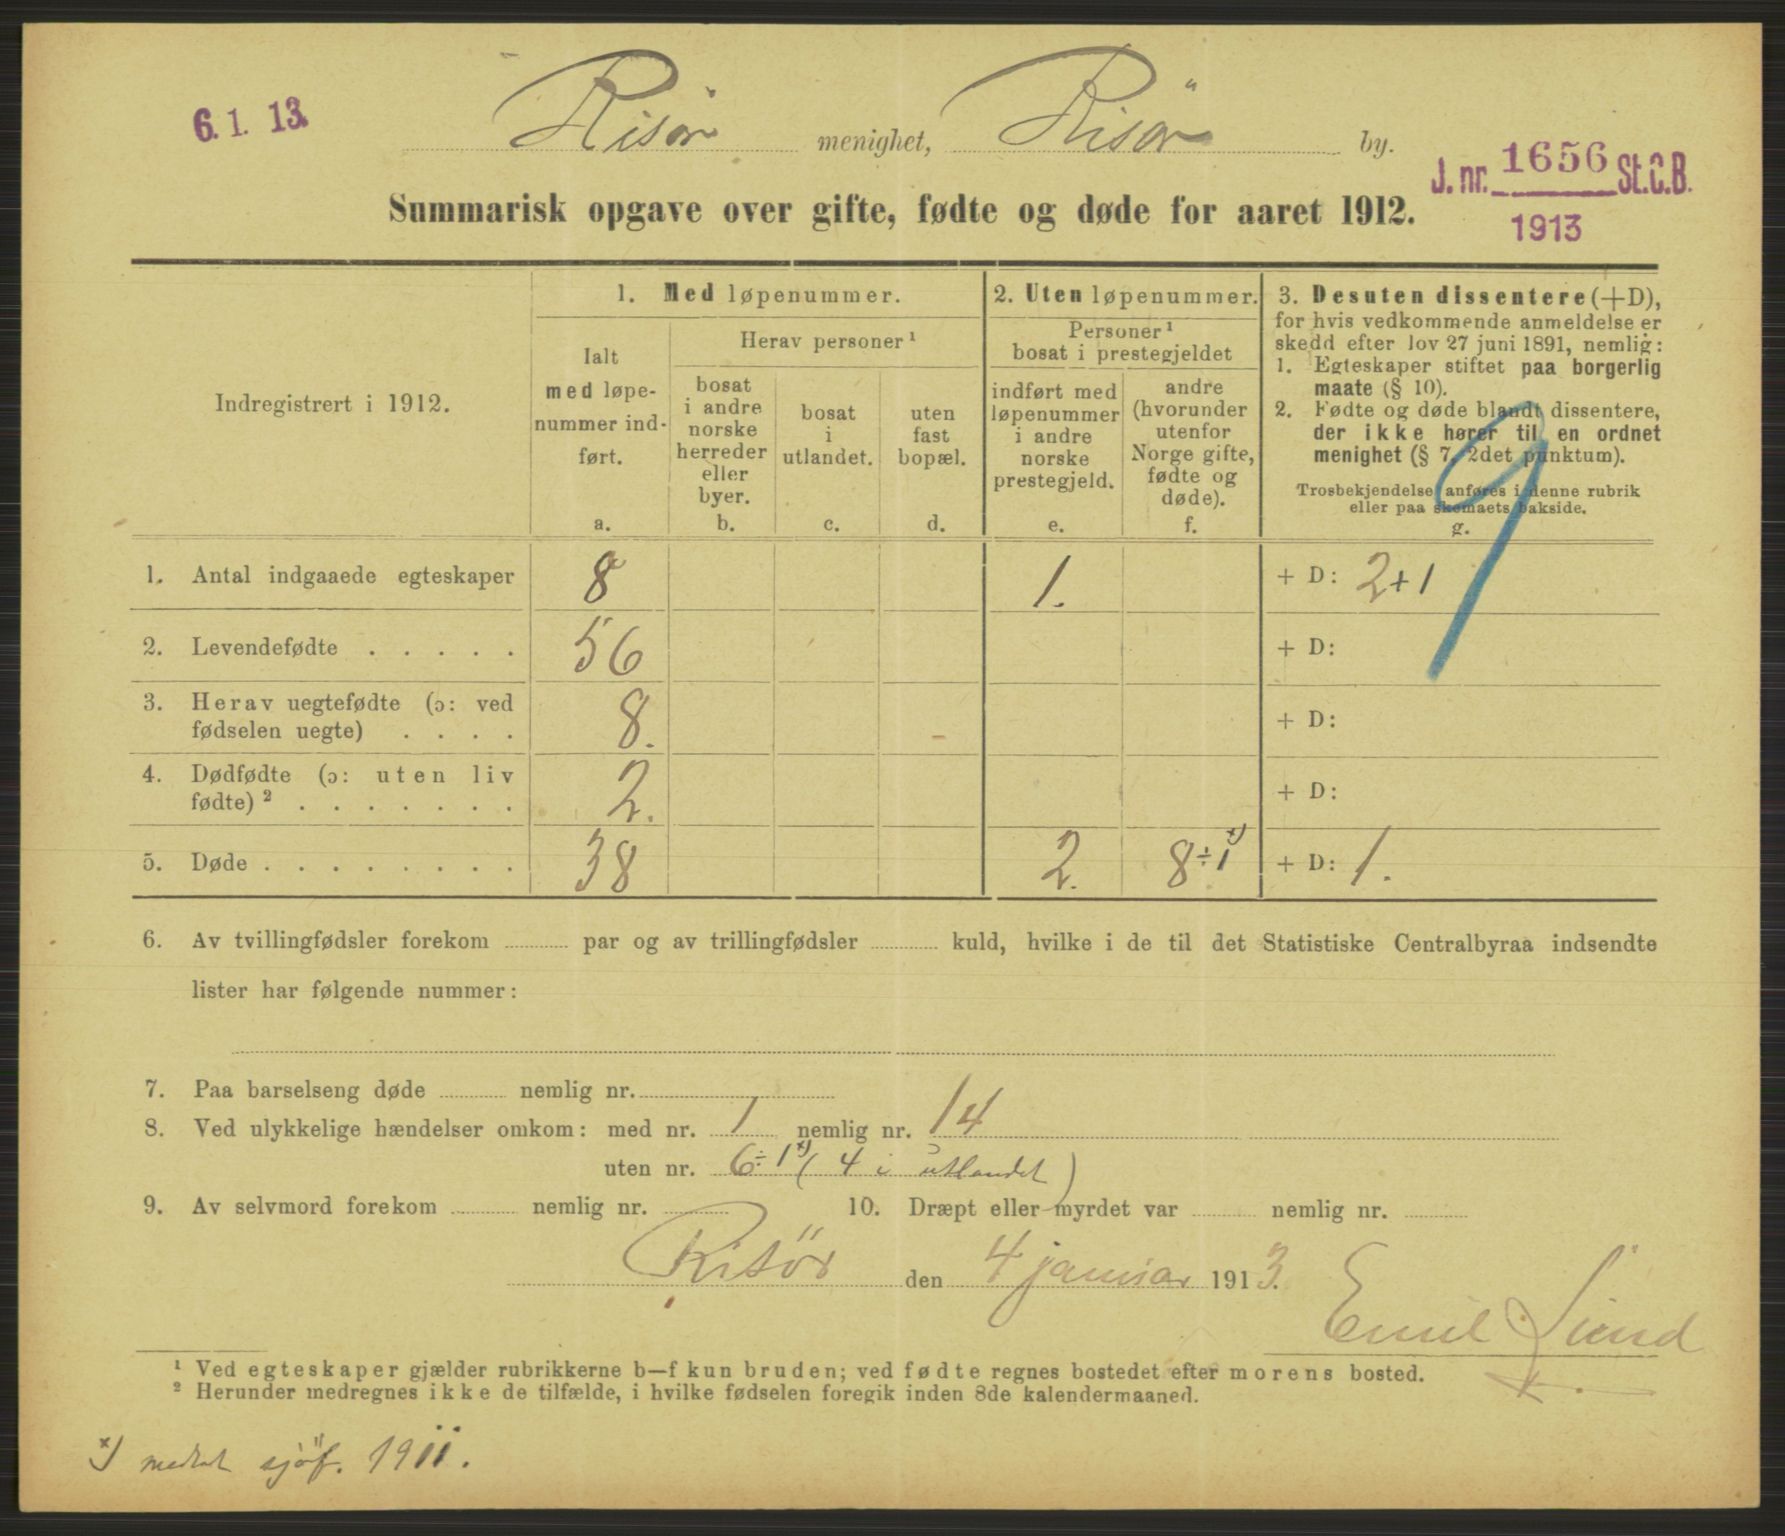 6. 1. 13.
Risør menighet, Risör by.
J. nr. 1656 St.C.B.
1913
Summarisk opgave over gifte, fødte og døde for aaret 1912.
Indregistrert i 1912.
1. Med løpenummer.
Ialt
med løpe-
nummer ind-
ført.
a.
Herav personer ¹
bosat
i andre
norske
herreder
eller
byer.
b.
bosat
i
utlandet.
c.
uten
fast
bopæl.
d.
2. Uten løpenummer.
Personer ¹
bosat i prestegjeldet
indført med
løpenummer
i andre
norske
prestegjeld.
e.
andre
(hvorunder
utenfor
Norge gifte,
fødte og
døde).
f.
3. Desuten dissentere (+D),
for hvis vedkommende anmeldelse er
skedd efter lov 27 juni 1891, nemlig:
1. Egteskaper stiftet paa borgerlig
maate (§ 10).
2. Fødte og døde blandt dissentere,
der ikke hører til en ordnet
menighet (§ 7, 2det punktum).
Trosbekjendelse anføres i denne rubrik
eller paa skemaets bakside.
g.
9
1. Antal indgaaede egteskaper 8 1. + D: 2+1
2. Levendefødte . . . . . 56 + D:
3. Herav uegtefødte (ɔ: ved
fødselen uegte) . . . . 8. + D:
4. Dødfødte (ɔ: uten liv
fødte) ² . . . . . . . 2. + D:
5. Døde . . . . . . . . 38 2. 8÷1 x) + D: 1.
6. Av tvillingfødsler forekom par og av trillingfødsler kuld, hvilke i de til det Statistiske Centralbyraa indsendte
lister har følgende nummer:
7. Paa barselseng døde nemlig nr.
8. Ved ulykkelige hændelser omkom: med nr. 1 nemlig nr. 14
uten nr. 6÷1 x) (4 i utlandet)
9. Av selvmord forekom nemlig nr. 10. Dræpt eller myrdet var nemlig nr.
Risör den 4 januar 1913.
Emil Lund
¹ Ved egteskaper gjælder rubrikkerne b—f kun bruden; ved fødte regnes bostedet efter morens bosted.
² Herunder medregnes ikke de tilfælde, i hvilke fødselen foregik inden 8de kalendermaaned.
x) sjöf. 1911.